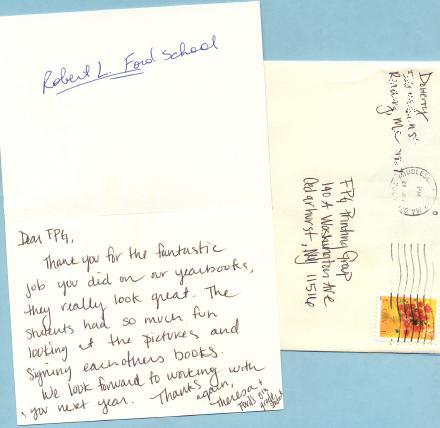 Robert L Ford School
Dear FPG,
Thank you for the fantastic
job you did on our yearbooks,
they really look great. The
students had so much fun
looking at the pictures and
signing eachothers books.
We look forward to working with
you next year. Thanks again,
Theresa +
FPG Printing Group
140 A Washington Ave
Cedarhurst, NY 11516